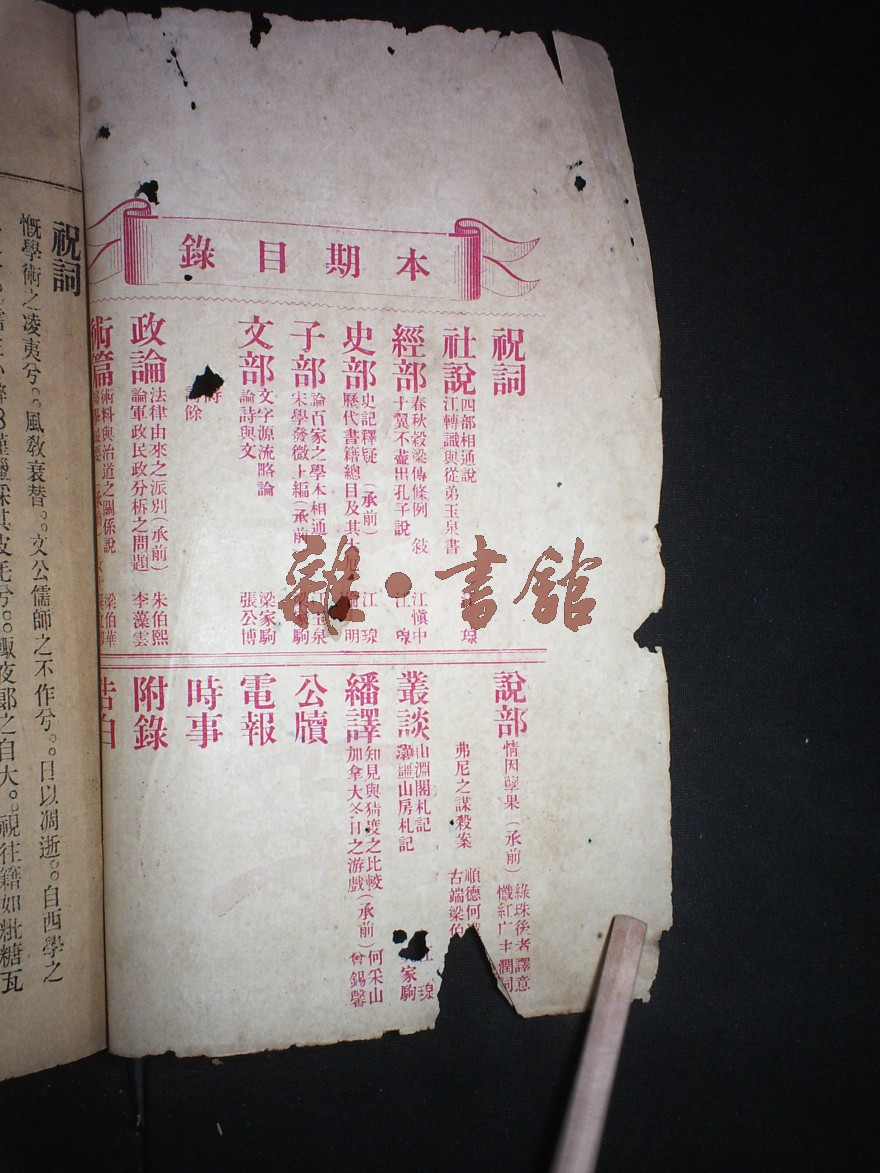 本期目錄
祝詞
社說
四部相通說
江轉識與從弟玉泉書
瑔
經部
春秋穀梁傳條例 敍
江愼中
十翼不盡出孔子說
江 瑔
史部
史記釋疑 (承前)
江 瑔
歷代書籍總目及其大
明
子部
論百家之學本相通
玉泉
宋學發微上編(承前
家駒
文部
文字源流略論
梁家駒
論詩與文
張公博
餘
政論
法律由來之派別(承前)
朱伯熙
論軍政民政分析之問題
李藻雲
術篇
術科與治道之關係說
梁伯華
說部
情因孽果 (承前)
綠珠後者譯意
懺紅广主潤詞
弗尼之謀殺案
順德何
古端梁伯
叢談
山淵閣札記
瑔
山房札記
家駒
繙譯
知見與猜度之比較(承前)
何采山
加拿大冬日之游戲
曾錫馨
公牘
電報
時事
附錄
告白
雜·書館
祝詞
慨學術之凌夷兮。風敎衰替。文公儒師之不作兮。日以凋逝。自西學之
其皮毛兮。輒夜郞之自大。視往籍如粃糠瓦